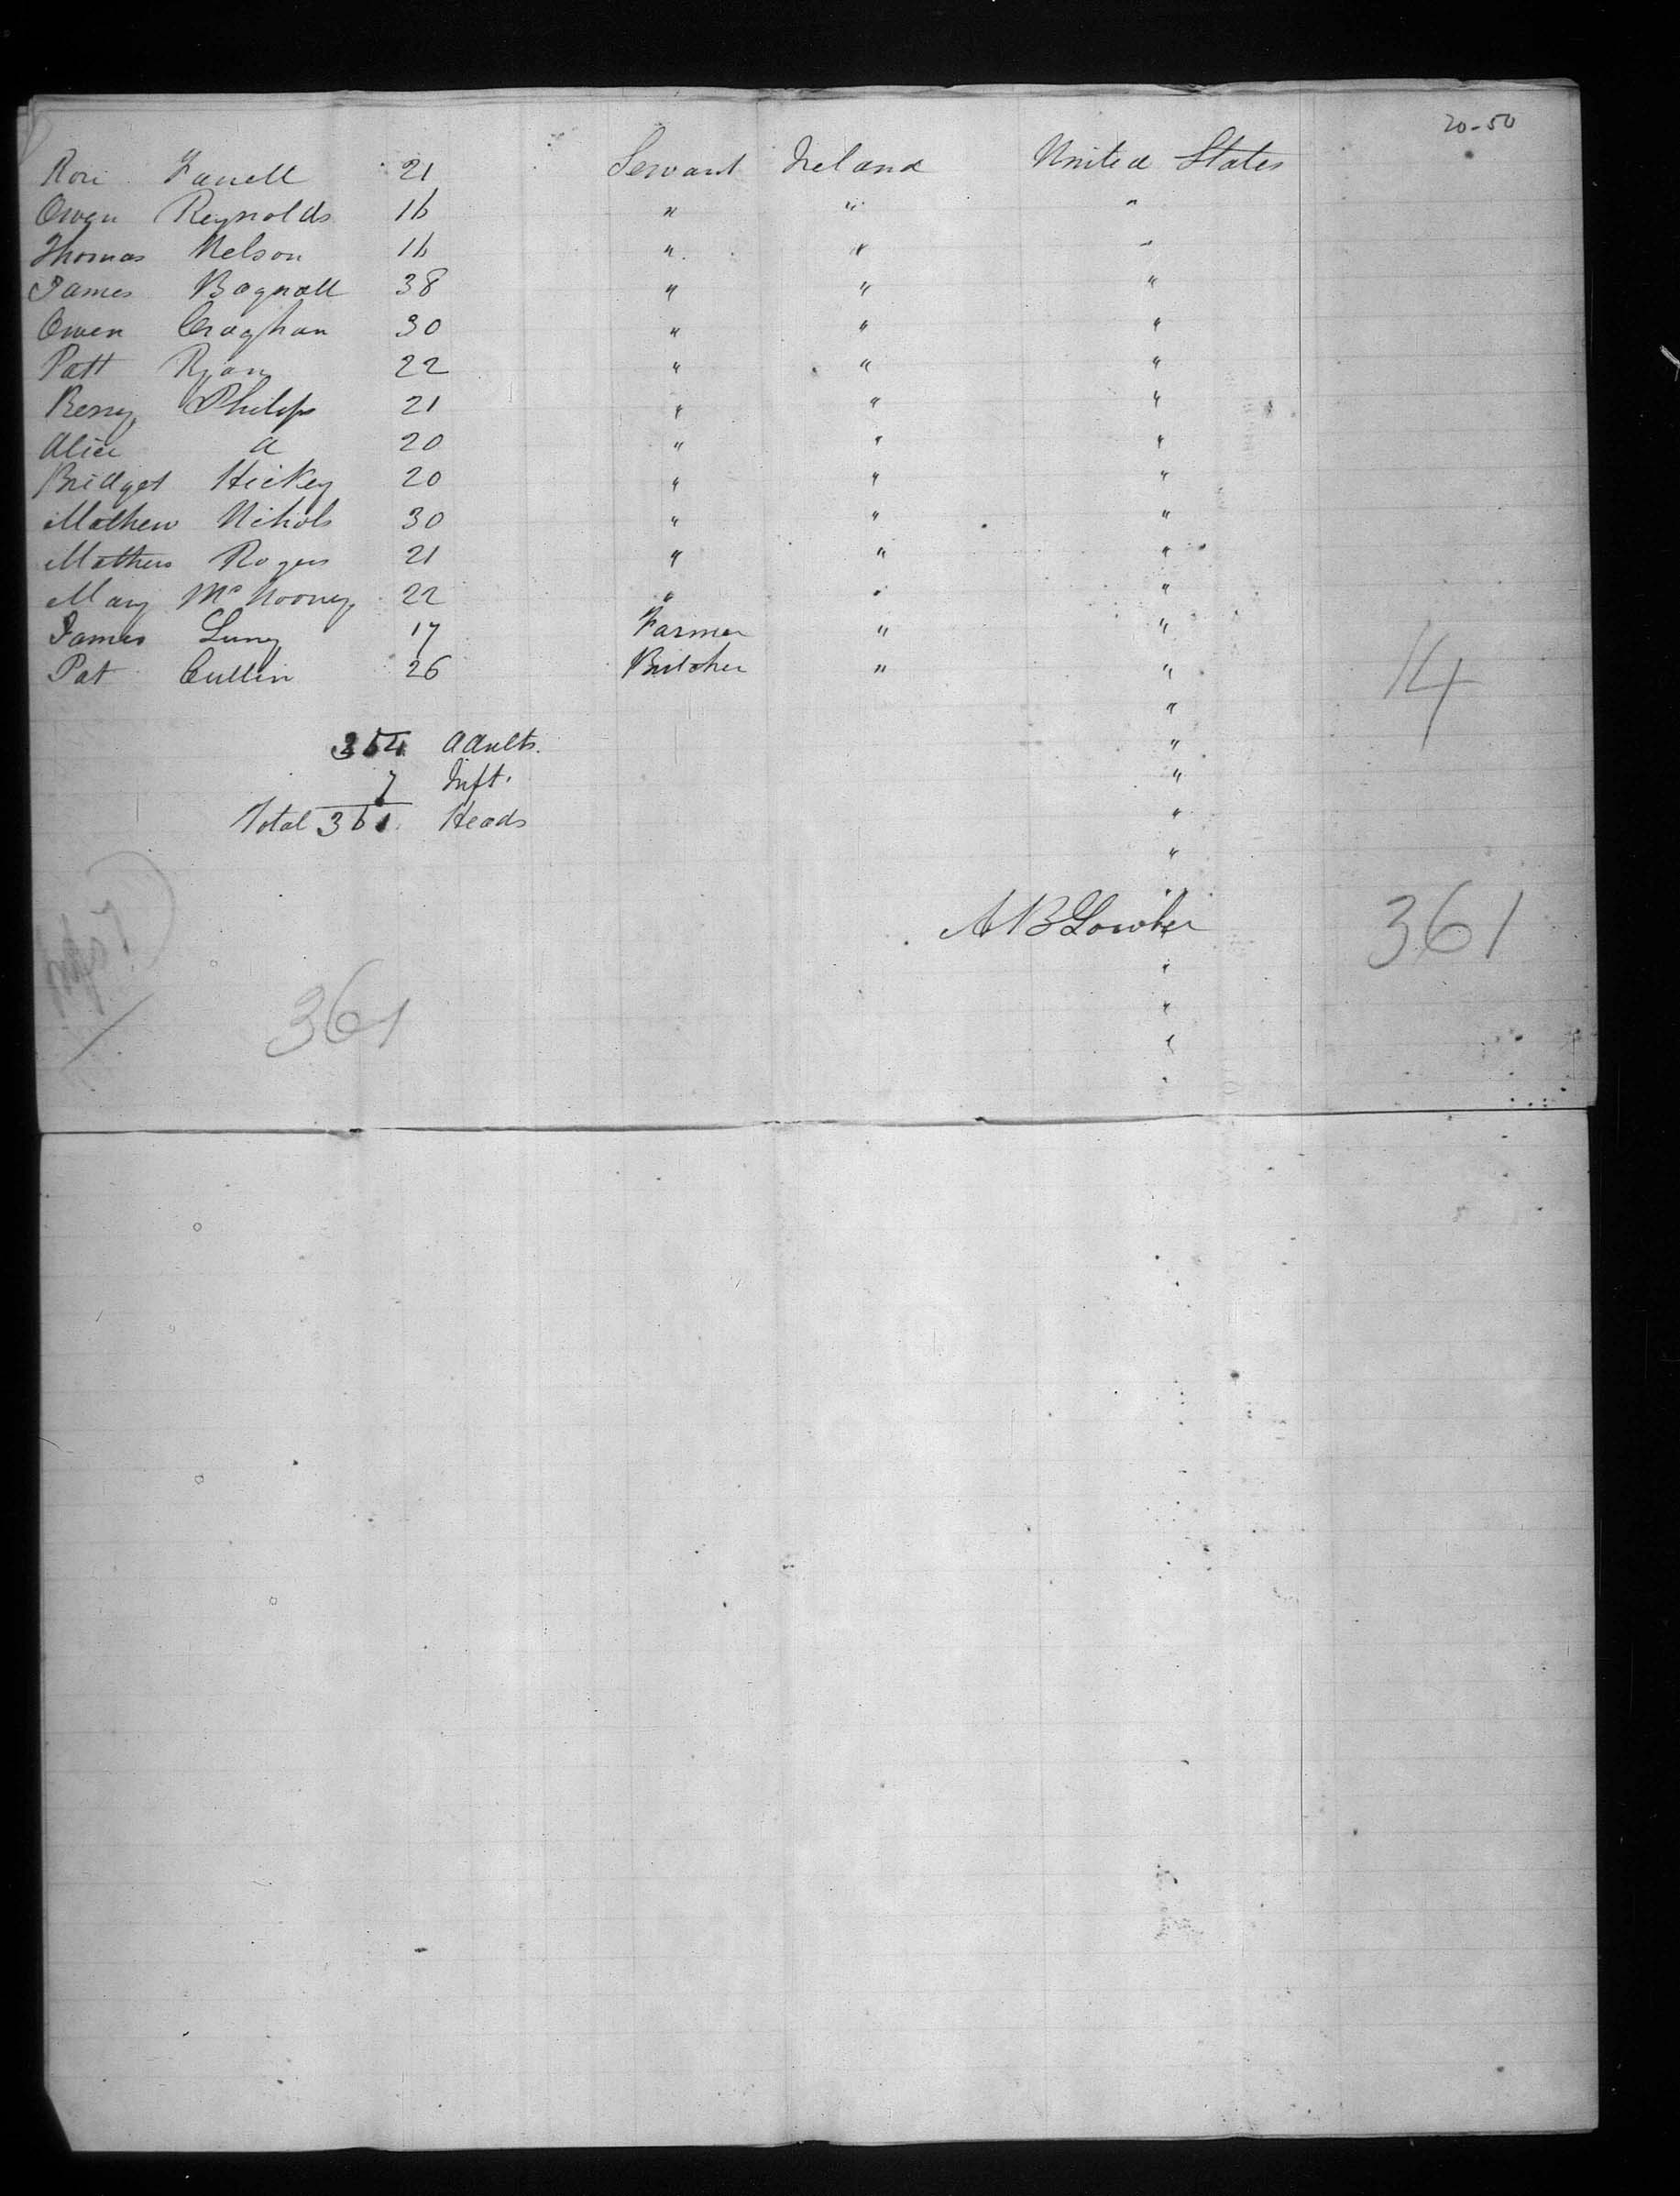 20-50
Rose Farrell 21 Servant Ireland United States
Owen Reynolds 16 " " "
Thomas Nelson 16 " " "
James Bagnall 38 " " "
Owen Craghan 30 " " "
Patt Ryan 22 " " "
Philips 21 " " "
Alice a 20 " " "
Bridget Hickey 20 " " "
Mathew Nihols 30 " " "
Mathew Rogers 21 " " "
Mary Mc Nooney 22 " " "
James Luny 17 Farmer " "
Pat Cullin 26 Butcher " "
14
"
354 Adults. "
7 Inft. "
Total 361 Heads "
"
"
A B Lowber 361
"
"
361
"
"